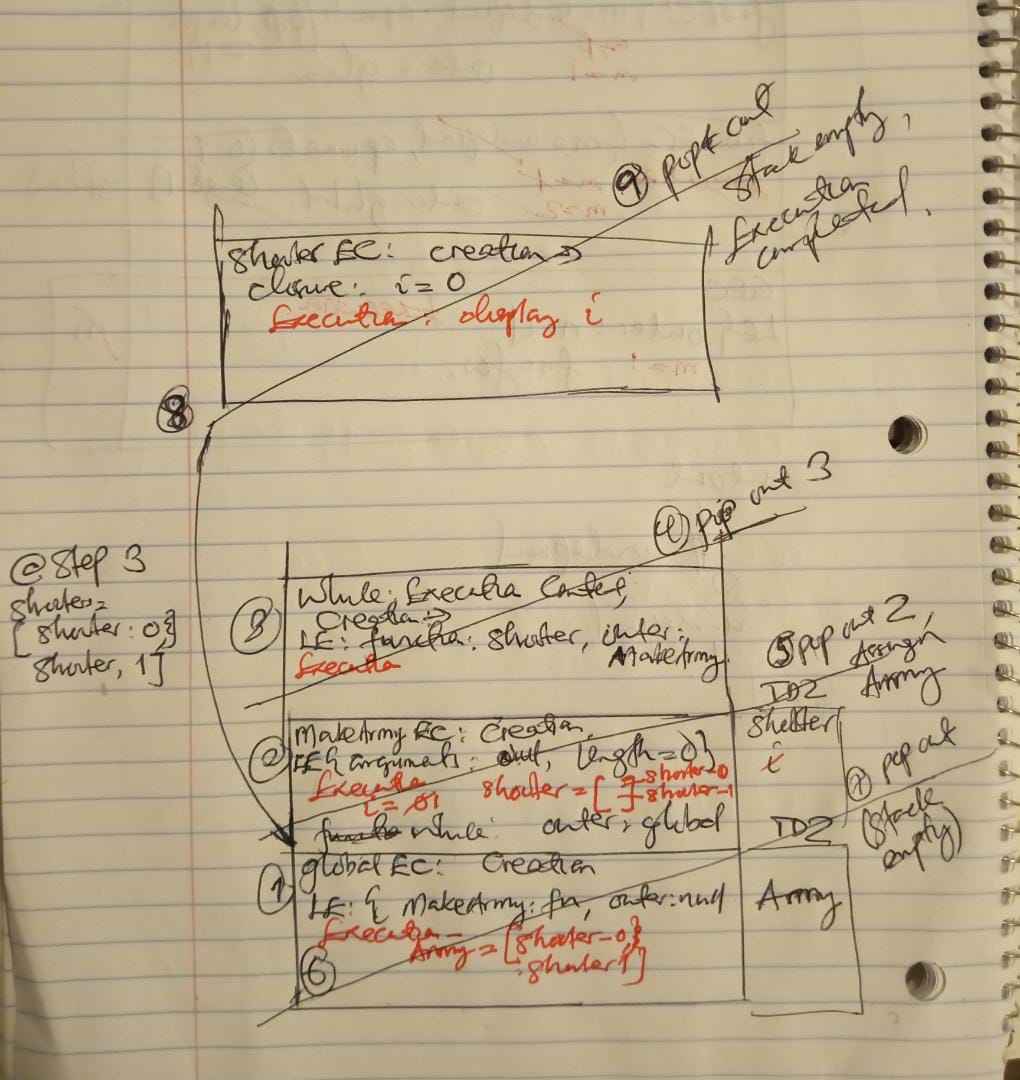 ⑨ pop out
Stack empty,
Execution
completed.
Shooter EC: creation →
closure: i = 0
Execution: display i
⑧
④ pop out 3
@ Step 3
shooters=
[ shooter: 0}
shooter, 1]
③
While: Execution Context,
Creation:→
LE: function: shooter, outer:
MakeArmy
Execution
⑤ pop out 2,
Assign
Army
TDZ
shooter
i
②
MakeArmy EC: Creation,
LE{ arguments: null, length=0}
Execution
i = 01
shooter = [ ]
shooter-0
shooter-1
⑦ pop out
(stack
empty)
while: outer: global
TDZ
①
global EC: Creation
LE: { MakeArmy: fn, outer: null
Army
Execution-
Army = [shooter-0}
shooter1]
⑥